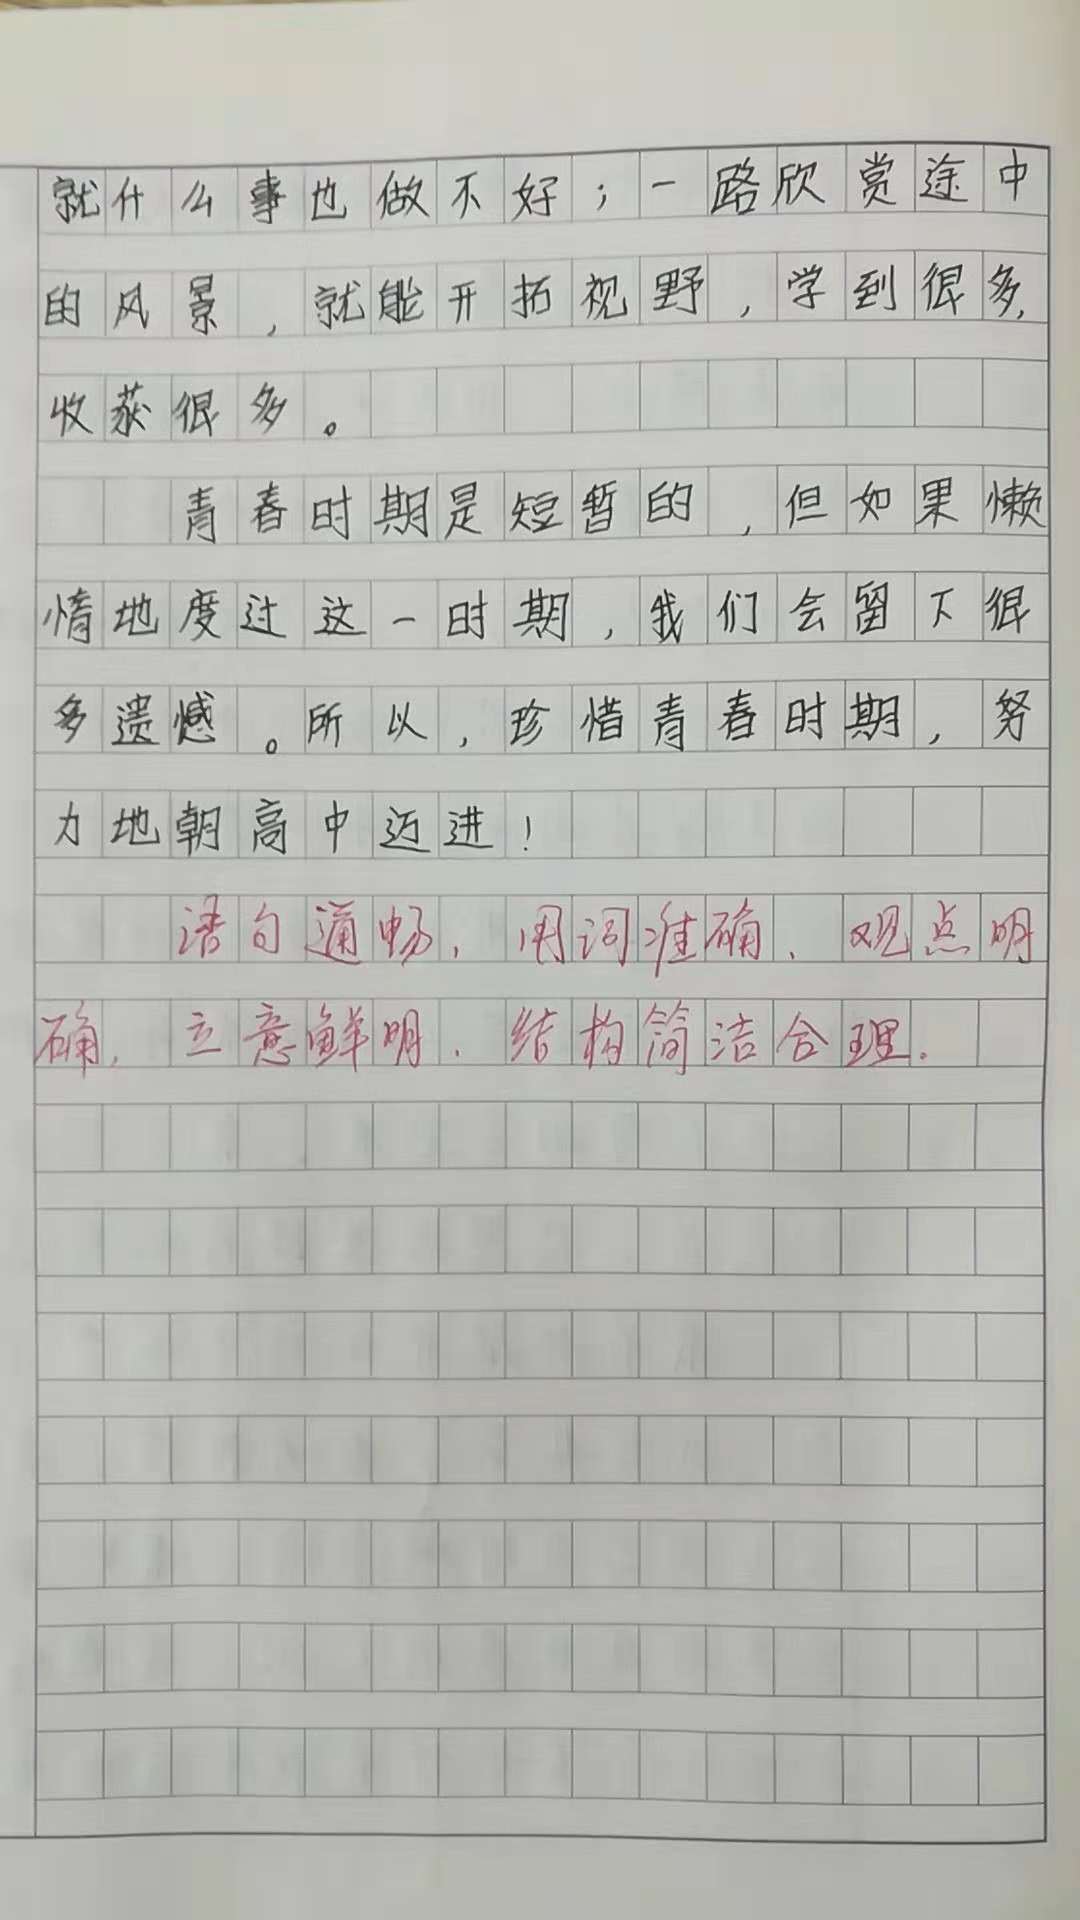 就什么事也做不好；一路欣赏途中
的风景，就能开拓视野，学到很多，
收获很多。
青春时期是短暂的，但如果懒
惰地度过这一时期，我们会留下很
多遗憾。所以，珍惜青春时期，努
力地朝高中迈进！
语句通畅，用词准确，观点明
确，立意鲜明，结构简洁合理。